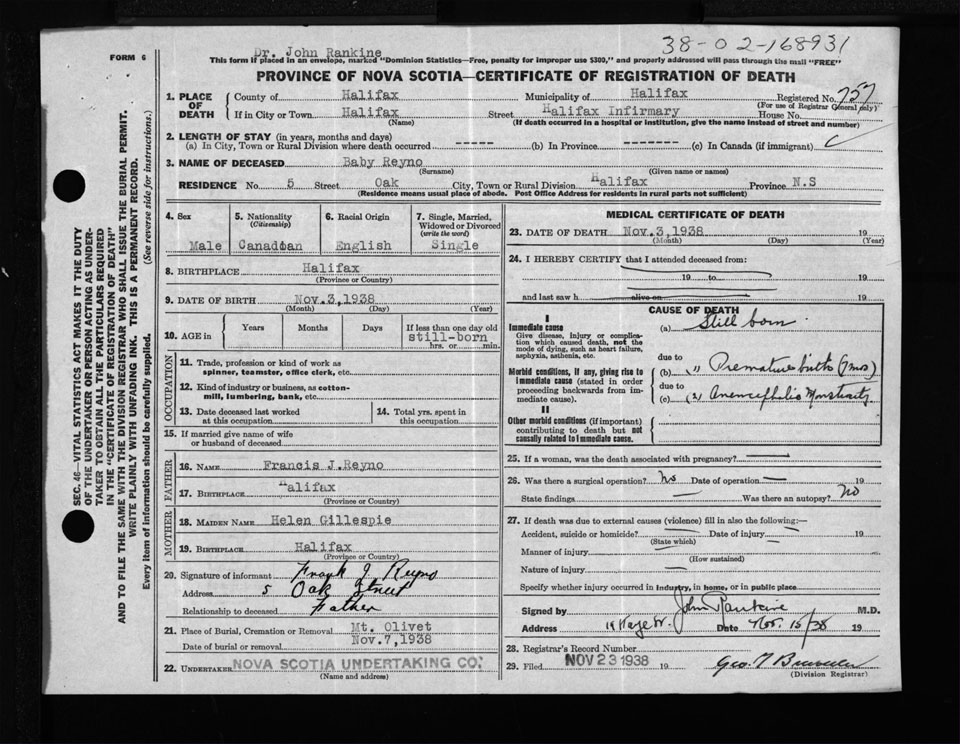 38-02-168931
FORM 6
Dr. John Rankine
This form if placed in an envelope, marked "Dominion Statistics—Free, penalty for improper use $300," and properly addressed will pass through the mail "FREE"
PROVINCE OF NOVA SCOTIA—CERTIFICATE OF REGISTRATION OF DEATH
1. PLACE OF DEATH County of Halifax Municipality of Halifax Registered No. 757
(For use of Registrar General only)
If in City or Town Halifax Street Halifax Infirmary House No.
(Name) (If death occurred in a hospital or institution, give the name instead of street and number)
2. LENGTH OF STAY (in years, months and days)
(a) In City, Town or Rural Division where death occurred ----- (b) In Province ------- (c) In Canada (if immigrant)
3. NAME OF DECEASED Baby Reyno
(Surname) (Given name or names)
RESIDENCE No. 5 Street Oak City, Town or Rural Division Halifax Province N.S
(Residence means usual place of abode. Post Office Address for residents in rural parts not sufficient)
4. Sex Male
5. Nationality (Citizenship) Canadian
6. Racial Origin English
7. Single, Married, Widowed or Divorced (write the word) Single
8. BIRTHPLACE Halifax
(Province or Country)
9. DATE OF BIRTH Nov.3,1938
(Month) (Day) (Year)
10. AGE in Years Months Days If less than one day old
still-born
hrs. or min.
OCCUPATION
11. Trade, profession or kind of work as spinner, teamster, office clerk, etc.
12. Kind of industry or business, as cotton-mill, lumbering, bank, etc.
13. Date deceased last worked at this occupation
14. Total yrs. spent in this occupation
15. If married give name of wife or husband of deceased
FATHER
16. NAME Francis J.Reyno
17. BIRTHPLACE Halifax
(Province or Country)
MOTHER
18. MAIDEN NAME Helen Gillespie
19. BIRTHPLACE Halifax
(Province or Country)
20. Signature of informant Frank J. Reyno
Address 5 Oak Street
Relationship to deceased Father
21. Place of Burial, Cremation or Removal Mt. Olivet
Date of burial or removal Nov.7,1938
22. UNDERTAKER NOVA SCOTIA UNDERTAKING CO.
(Name and address)
MEDICAL CERTIFICATE OF DEATH
23. DATE OF DEATH Nov.3,1938 19
(Month) (Day) (Year)
24. I HEREBY CERTIFY that I attended deceased from:
19 to 19
and last saw h alive on 19
CAUSE OF DEATH
I
Immediate cause (a) Still born
Give disease, injury or complication which caused death, not the mode of dying, such as heart failure, asphyxia, asthenia, etc.
due to
Morbid conditions, if any, giving rise to immediate cause (stated in order proceeding backwards from immediate cause).
(b) Premature birth (7 mos)
due to
(c) (2) Anencephalic Monstrosity
II
Other morbid conditions (if important) contributing to death but not causally related to immediate cause.
25. If a woman, was the death associated with pregnancy?
26. Was there a surgical operation? No Date of operation — 19
State findings — Was there an autopsy? No
27. If death was due to external causes (violence) fill in also the following:—
Accident, suicide or homicide? Date of injury 19
(State which)
Manner of injury
(How sustained)
Nature of injury
Specify whether injury occurred in industry, in home, or in public place
Signed by John Rankine M.D.
Address Date Nov. 15/38 19
28. Registrar's Record Number
29. Filed NOV 23 1938 19
(Division Registrar)
SEC. 46—VITAL STATISTICS ACT MAKES IT THE DUTY
OF THE UNDERTAKER OR PERSON ACTING AS UNDER-
TAKER TO OBTAIN ALL THE PARTICULARS REQUIRED
IN THE "CERTIFICATE OF REGISTRATION OF DEATH"
AND TO FILE THE SAME WITH THE DIVISION REGISTRAR WHO SHALL ISSUE THE BURIAL PERMIT.
WRITE PLAINLY WITH UNFADING INK. THIS IS A PERMANENT RECORD.
Every item of information should be carefully supplied. (See reverse side for instructions.)